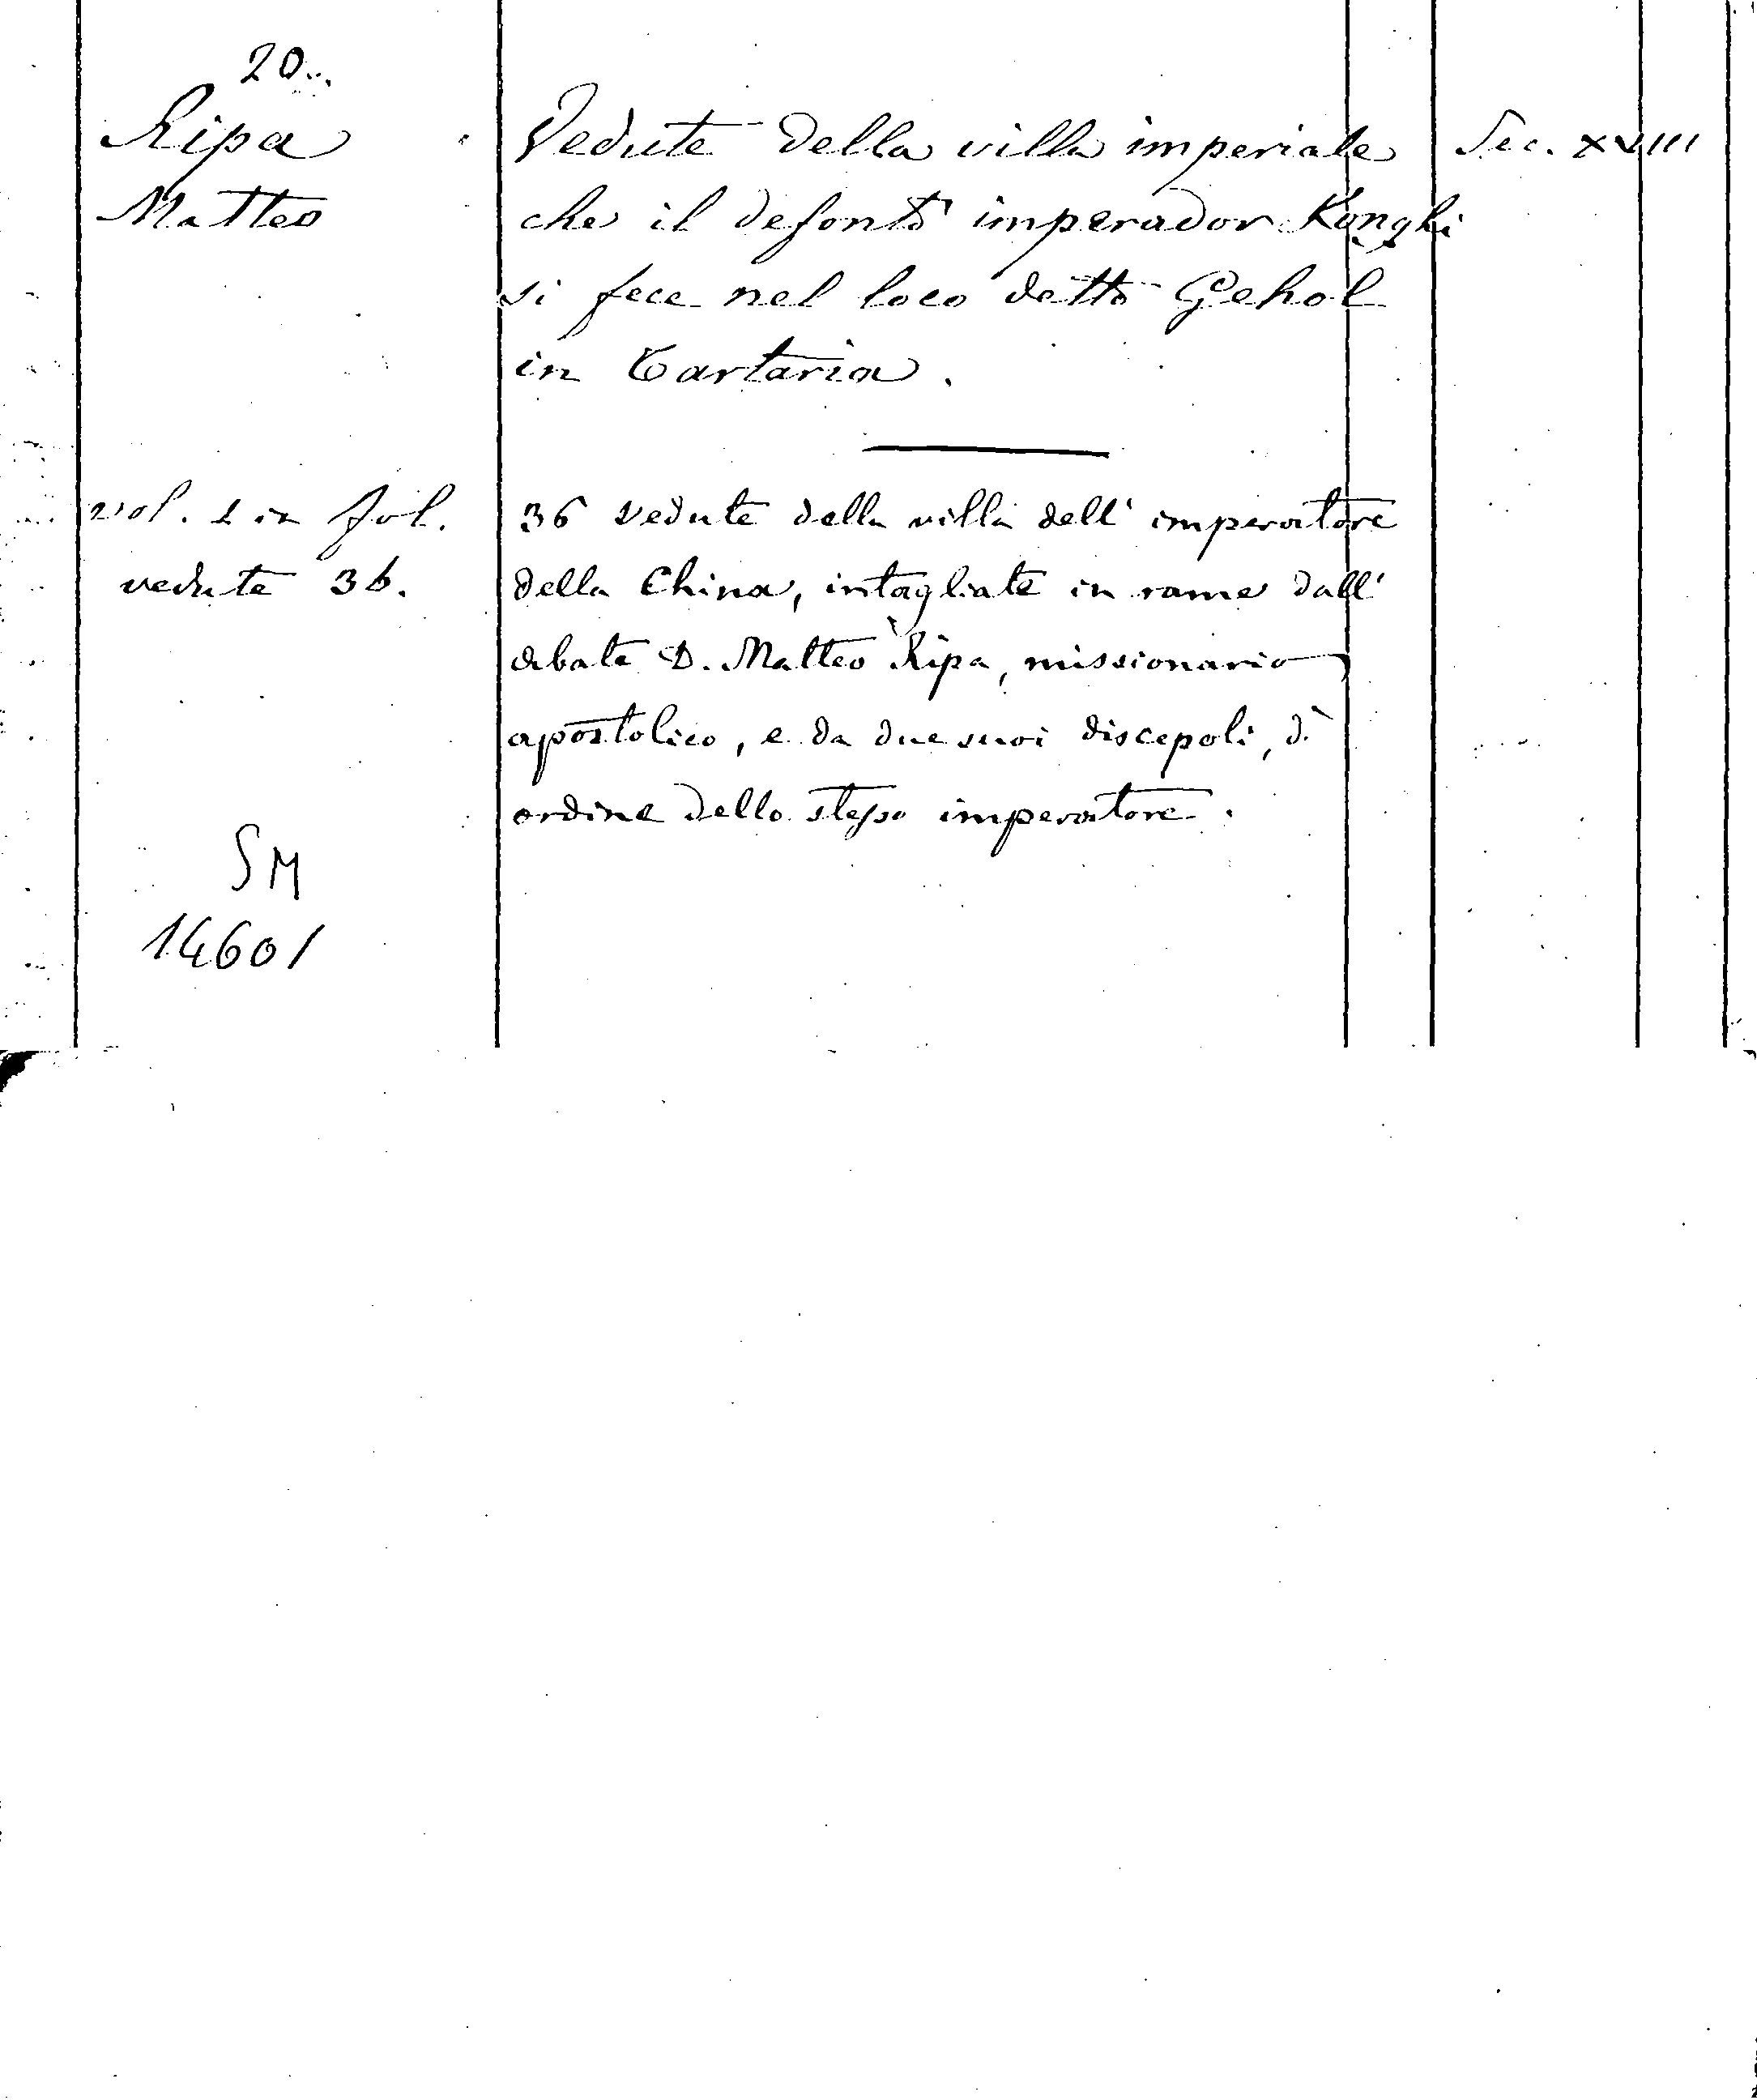 20..
Ripa
Matteo
Vedute della villa imperiale
che il defonto imperador Kanghi
si fece nel loco detto Gehol
in Tartaria.
Sec. XVIII
vol. 1 in fol.
vedute 36.
36 vedute della villa dell' imperatore
della China, intagliate in rame dall'
abate D. Matteo Ripa, missionario
apostolico, e da due suoi discepoli, di
ordine dello stesso imperatore.
SM
14601